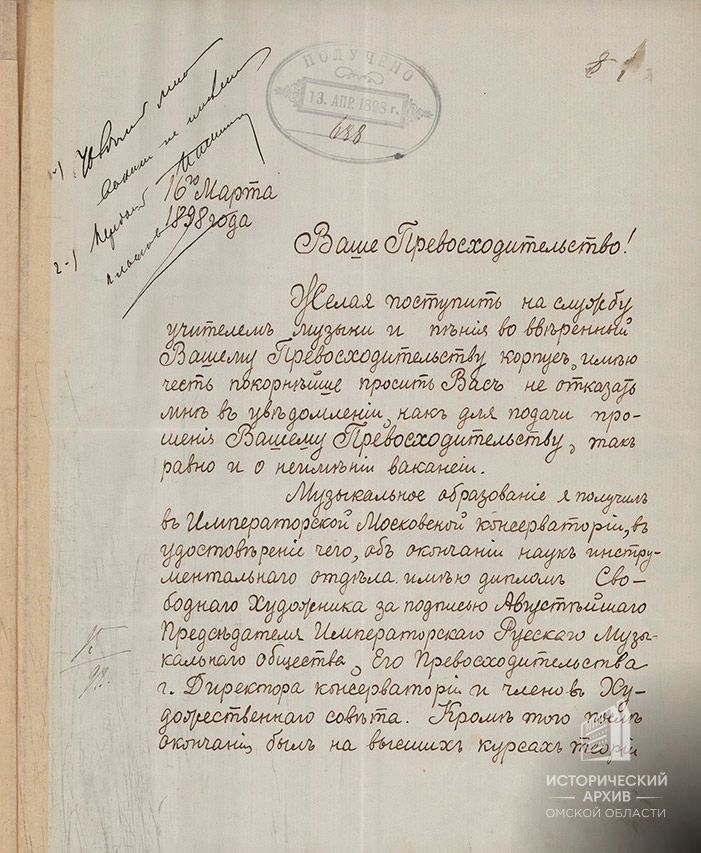 ПОЛУЧЕНО
13. АПР. 1898 г.
688
1-)
не имеется
2-) Передать
16го Марта
1898 года
Ваше Превосходительство!
Желая поступить на службу
учителемъ музыки и пѣнія во ввѣренный
Вашему Превосходительству корпусъ, имѣю
честь покорнѣйше просить Васъ не отказать
мнѣ въ увѣдомленіи, какъ для подачи про-
шенія Вашему Превосходительству, такъ
равно и о неимѣніи вакансіи.
Музыкальное образованіе я получилъ
въ Императорской Московской консерваторіи, въ
удостовѣреніе чего, объ окончаніи наукъ инстру-
ментальнаго отдѣла имѣю дипломъ Сво-
боднаго Художника за подписью Августѣйшаго
Предсѣдателя Императорскаго Русскаго Музы-
кальнаго Общества, Его Превосходительства
г. Директора консерваторіи и членовъ Ху-
дожественнаго совѣта. Кромѣ того послѣ
окончанія былъ на высшихъ курсахъ теоріи
ИСТОРИЧЕСКИЙ
АРХИВ
ОМСКОЙ ОБЛАСТИ